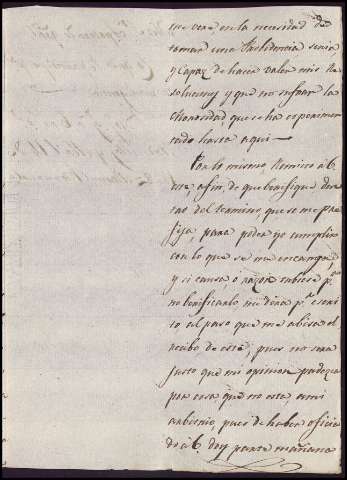 me vere en la necesidad de
tomar una Providencia seria
y Capaz de hacer valer mis Re
soluciones y que no sufran la
morosidad, que se ha experimen
tado hasta aqui
Por lo mismo, Remito a V.
este, a fin de que verifique den
tro del termino, que se me pre
fija, para poder yo cumplir
con lo que se me encarga,
y si causa o razon tubiere p.ª
no verificarlo me dira p.r escri
to al paso que me abisa el
recibo de este; pues no sera
justo que mi opinion padezca
por cosa que no esta, a mi
arbitrio, pues de haber oficia
do a V. doy parte mañana